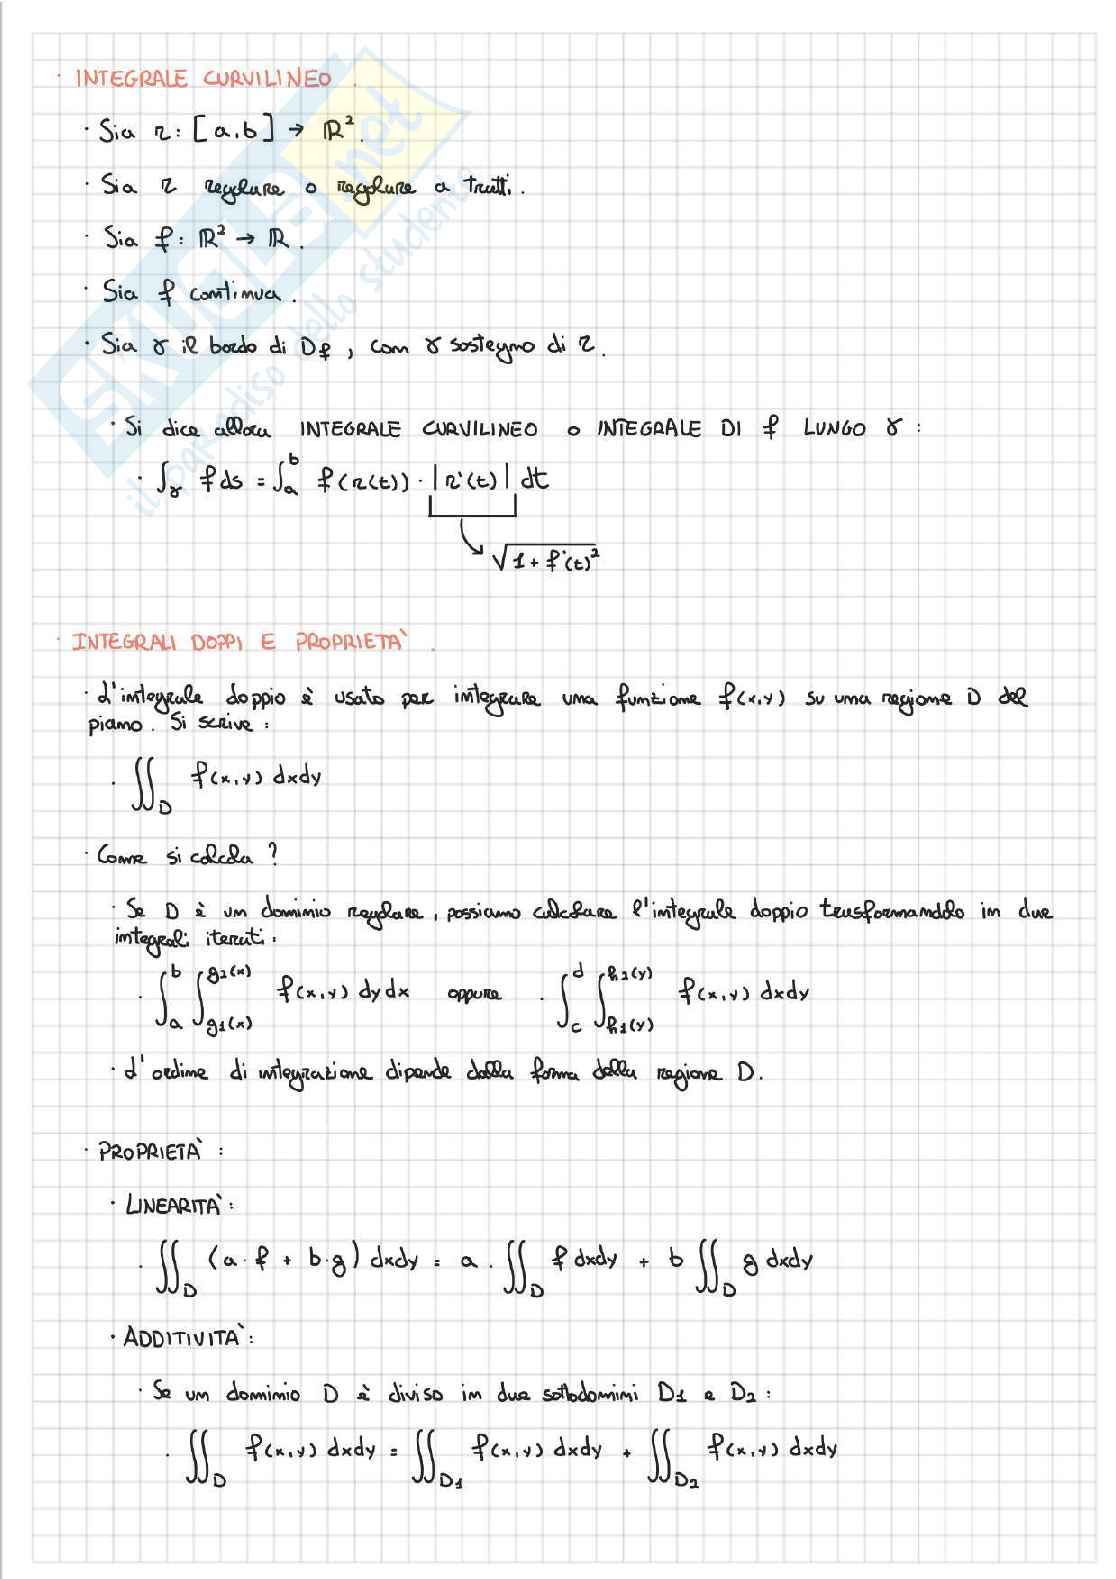 · INTEGRALE CURVILINEO .
· Sia r : [a,b] → ℝ².
· Sia r regolare o regolare a tratti.
· Sia f : ℝ² → ℝ .
· Sia f continua .
· Sia γ il bordo di Df , con γ sostegno di r .
· Si dice allora INTEGRALE CURVILINEO o INTEGRALE DI f LUNGO γ :
· ∫γ f ds = ∫a^b f(r(t)) · |r'(t)| dt
√1 + f'(t)²
· INTEGRALI DOPPI E PROPRIETÀ .
· L'integrale doppio è usato per integrare una funzione f(x,y) su una regione D del
piano . Si scrive :
· ∬D f(x,y) dxdy
· Come si calcola ?
· Se D è un dominio regolare , possiamo calcolare l'integrale doppio trasformandolo in due
integrali iterati :
· ∫a^b ∫g1(x)^g2(x) f(x,y) dy dx oppure · ∫c^d ∫h1(y)^h2(y) f(x,y) dxdy
· L'ordine di integrazione dipende dalla forma della regione D .
· PROPRIETÀ :
· LINEARITÀ :
· ∬D (a · f + b · g) dxdy = a · ∬D f dxdy + b ∬D g dxdy
· ADDITIVITÀ :
· Se un dominio D è diviso in due sottodomini D1 e D2 :
· ∬D f(x,y) dxdy = ∬D1 f(x,y) dxdy + ∬D2 f(x,y) dxdy
SKUOLA.net
il paradiso dello studente